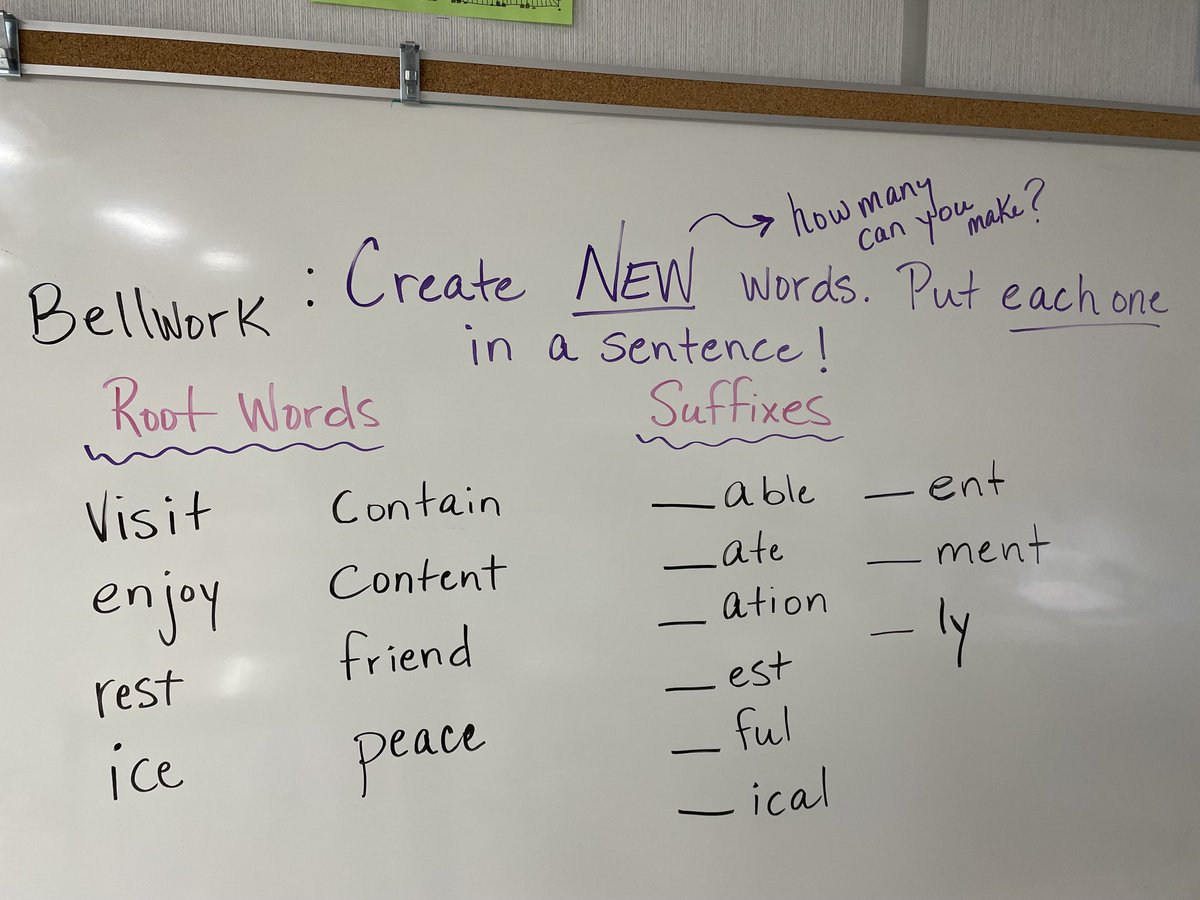 how many
can you make?
Bellwork : Create NEW words. Put each one
in a sentence!
Root Words
Visit
enjoy
rest
ice
Contain
Content
friend
peace
Suffixes
__able
__ate
__ation
__est
__ful
__ical
__ent
__ment
__ly